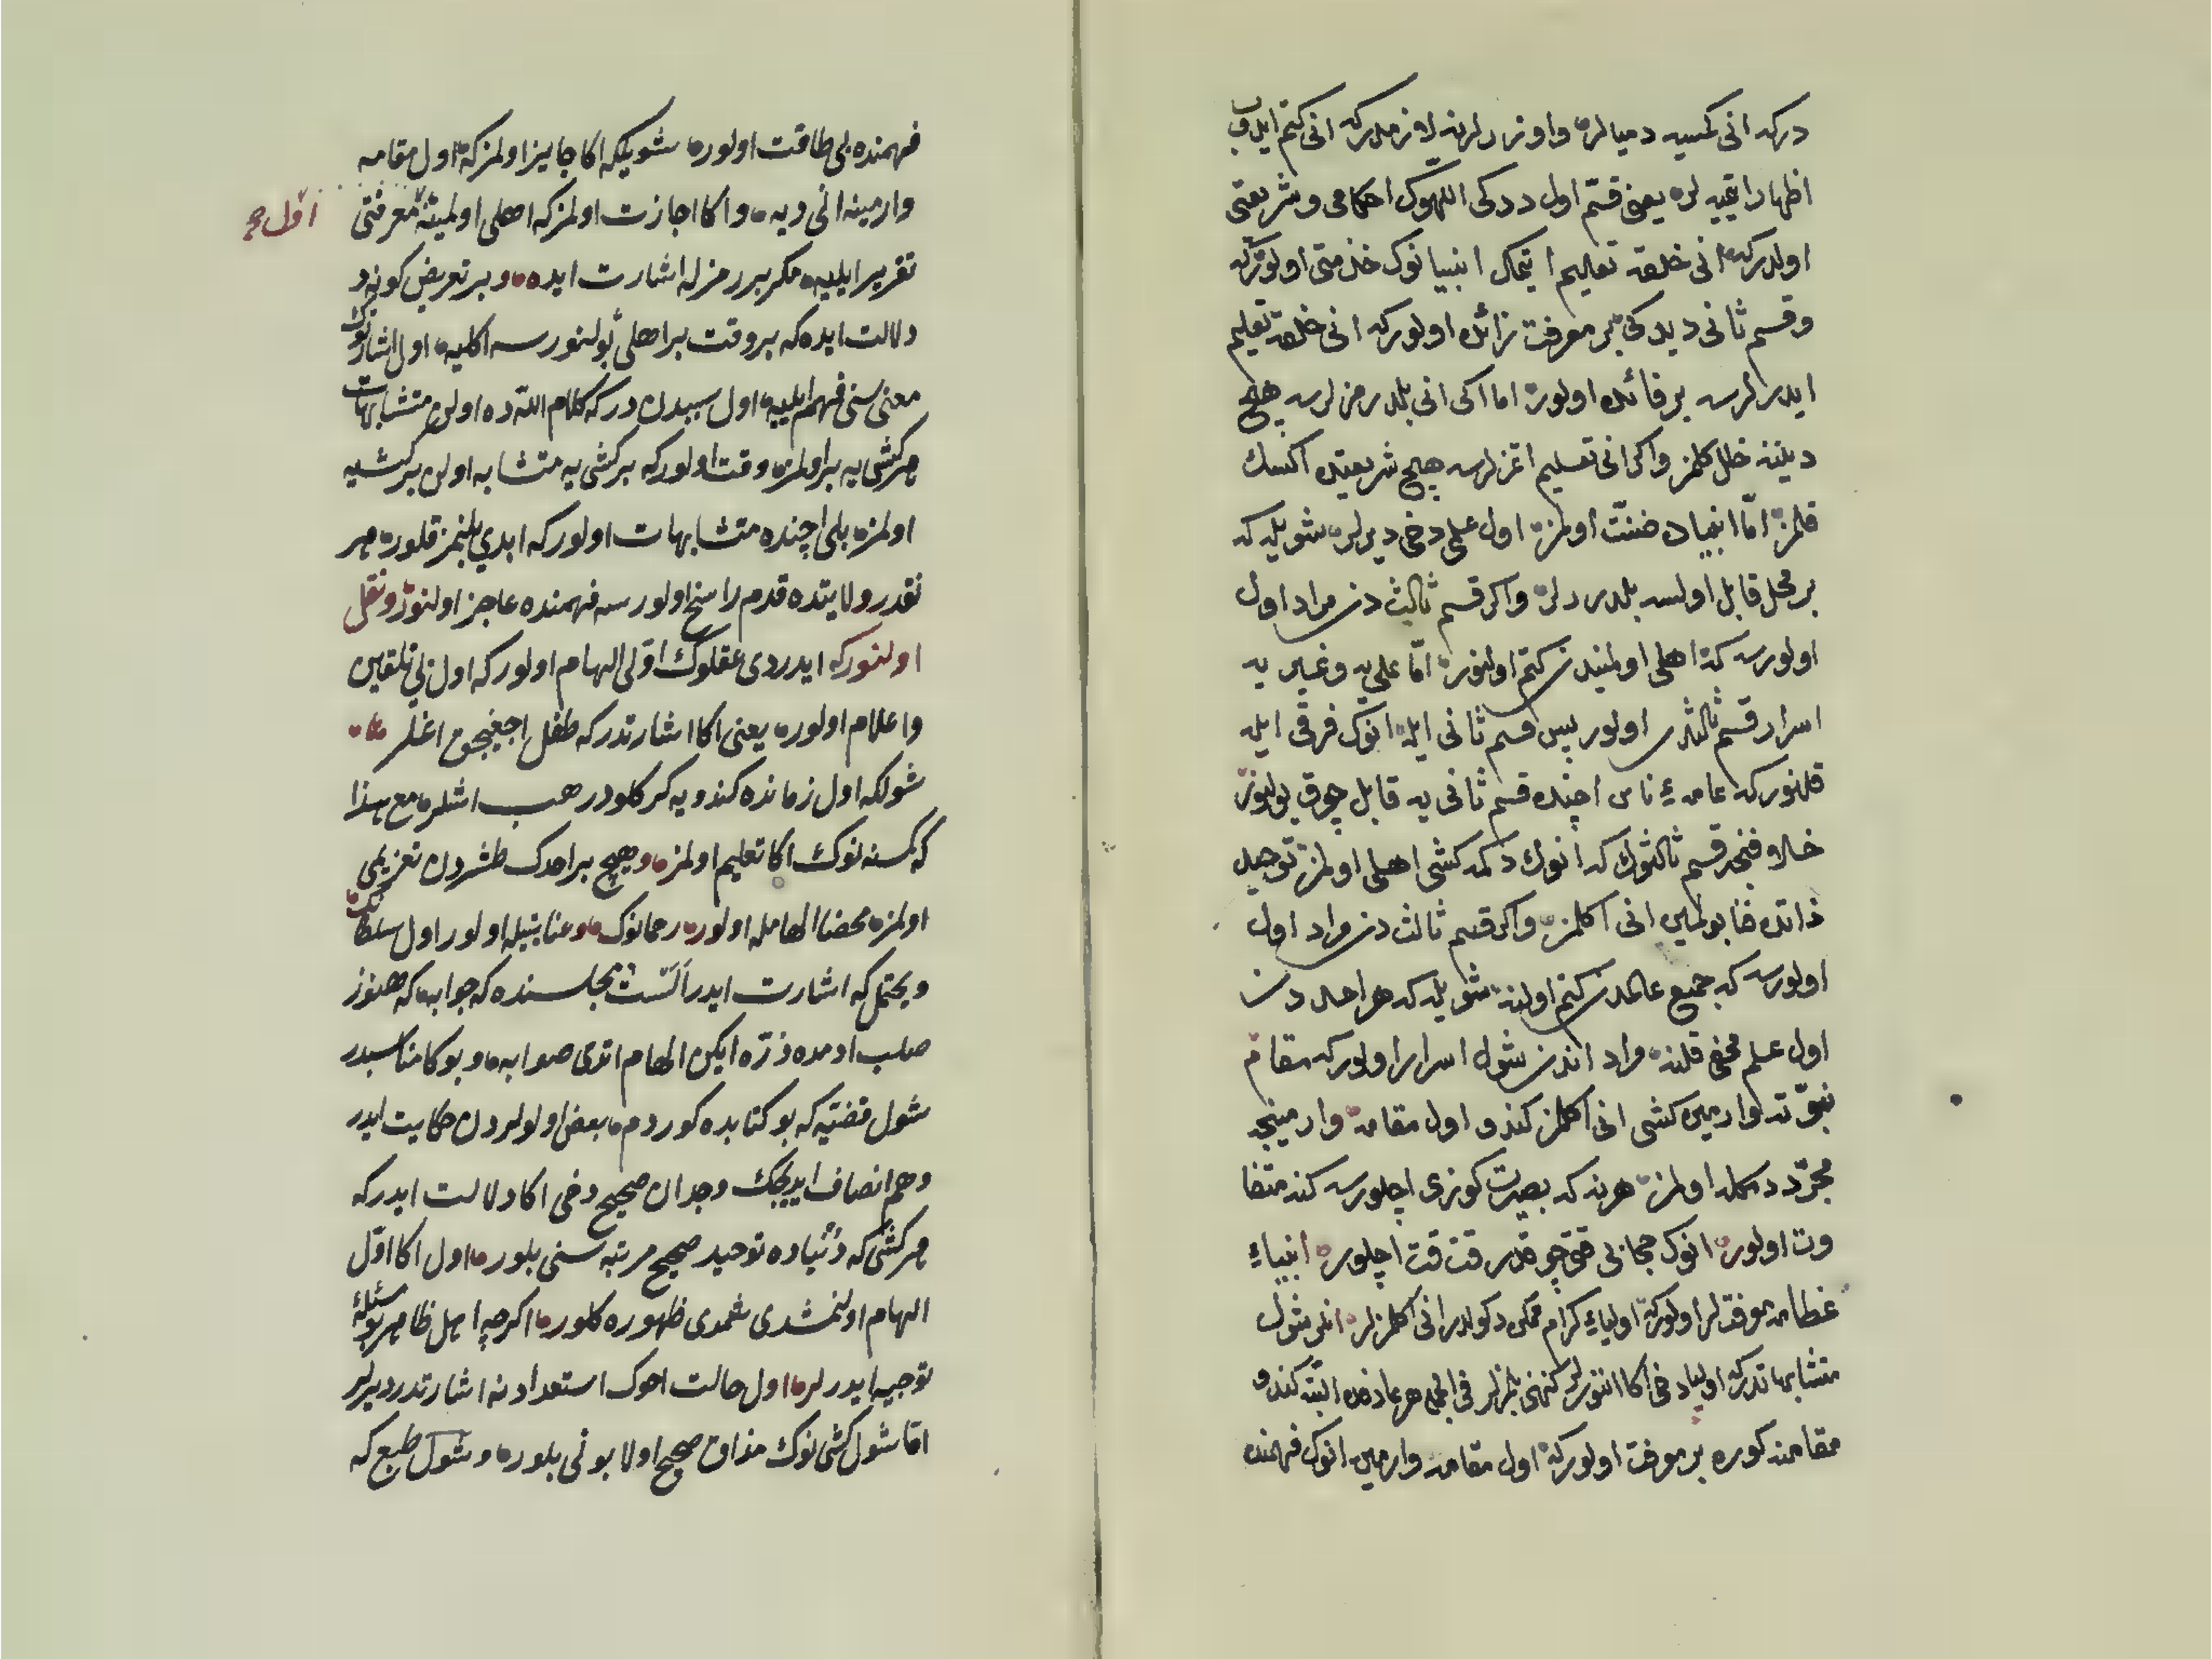 دركه انی كمسیه دمیالر واوزرلرنه لازمدركه انی كتم ایدوب
اظهار ایتمیه لر یعنی قسم اول ددكی اللهوك احكامی وشریعتی
اولدركه انی خلقه تعلیم ایتمك انبیانوك خدمتی اولوركه
وقسم ثانی دیدكی بر معرفت زائده اولوركه انی خلقه تعلیم
ایدرلرسه بر فائده اولور اما اكر انی بلدرمزلرسه هیچ
دینه خلل كلمز واكر انی تعلیم اتمزلرسه هیچ شریعتده اكسك
قلمز امّا انبیاده ضنّت اولمز اول علمی دخی دیرلر شویله كه
بر محل قابل اولسه بلدررلر واكر قسم ثالث دن مراد اول
اولورسه كه اهلی اولمیندن كتم اولنور امّا علی یه وغیر یه
اسرار قسم ثالثدن اولور پس قسم ثانی ایله انوك فرقی ایله
قلنور كه عامهٔ ناس اچنده قسم ثانی یه قابل چوق بولنور
خلاف قسم ثالثوك كه انوك دكمه كشی اهلی اولمز توحید
ذاتده فنا بولمین انی اكلمز واكر قسم ثالث دن مراد اول
اولورسه كه جمیع عالمدن كتم اولنه شویله كه هر احد دن
اول علم مخفی قلنه مراد اندن شول اسرار اولور كه مقام
نبوّته وارمین كشی انی اكلمز كندو اول مقامه وارمینجه
مجرّد دمكله اولمز هرنه كه بصیرت كوزی اچلورسه كنه متفا
وت اولور انوك حجابی قت قت اچلور انبیاء
عظامه معرفتلر اولوركه اولیاء كرام ممكن دكولدر انی اكلمزلر اندن شول
متشابهاتدركه اولیا دخی اكا كنهنی بلمزلر فی الجمله هر عارفه البته كندو
مقامنه كوره بر معرفت اولوركه اول مقامه وارمین انوك فهمنده
فهمنده بی طاقت اولور شویلكه اكا جایز اولمز كه اول مقامه
وارمینه انی دیه واكا اجازت اولمز كه اهلی اولمینه معرفتی
اول
تقریر ایلیه مكر بر رمزله اشارت ایده وبر تعریض كونه
دلالت ایده كه بر وقت بر اهلی بولنورسه اكلیه اول اشارتوك
معنی سنی فهم ایلیه اول سببدن دركه كلام الله ده اولن متشابهات
هر كشی یه بر اولمز وقت اولور كه بر كشی یه متشابه اولن بر كشیه
اولمز بلی اچنده متشابهات اولور كه ابدی بلنمز قلور هر
نقدر ولایتده قدم راسخ اولورسه فهمنده عاجز اولنور ونقل
اولنور كه ایدردی عقلوك اوّلی الهام اولور كه اول تلقین
واعلام اولور یعنی اكا اشارتدر كه طفل اغلر
شولكه اول زمانده كندویه كركلودر هب اشلر مع هذا
كه كمسنه نوك اكا تعلیم اولمز وهیچ بر احدك طشردن تعزیلمی
اولمز محضا الهامله اولور رحمانوك وعنایتیله اولور اول سلطانك
ویحتمل كه اشارت ایدر اَلَسْتُ مجلسنده كه جوابه كه هنوز
صلب ادمده ذرّه ایكن الهام اتدی صوابه وبوكا مناسبدر
شول قضیّه كه بو كتابده كوردم بعض اولولردن حكایت ایدر
وهم انصاف ایدیجك وجدان صحیح دخی اكا دلالت ایدر كه
هر كشی كه دنیاده توحید صحیح مرتبه سنی بلور اول اكا اوّل
الهام اولنمشدی شمدی ظهوره كلور اكرچه اهل ظاهر بو مسئلهٔ
توجیه ایدرلر اول حالت انوك استعدادنه اشارتدر دیرلر
امّا شول كشی نوك مذاق صحیح اولا بونی بلور وشول طبع كه